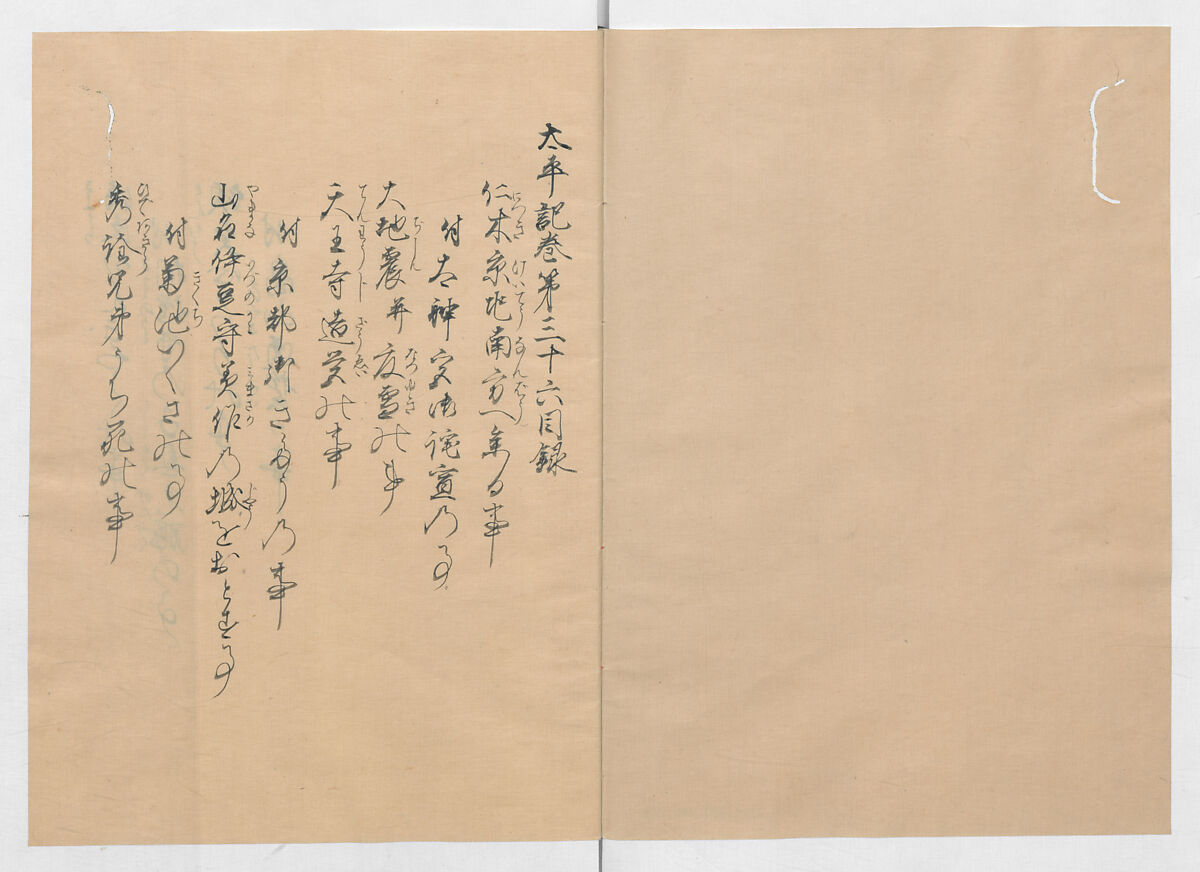 太平記巻第三十六目録
仁木京兆南方へ参る事
付太神宮御詫宣乃事
大地震并夏雪の事
天王寺造営の事
付京都御きたう乃事
山名伊豆守美作乃城をおとす事
付菊池いくさの事
秀詮兄弟うち死の事